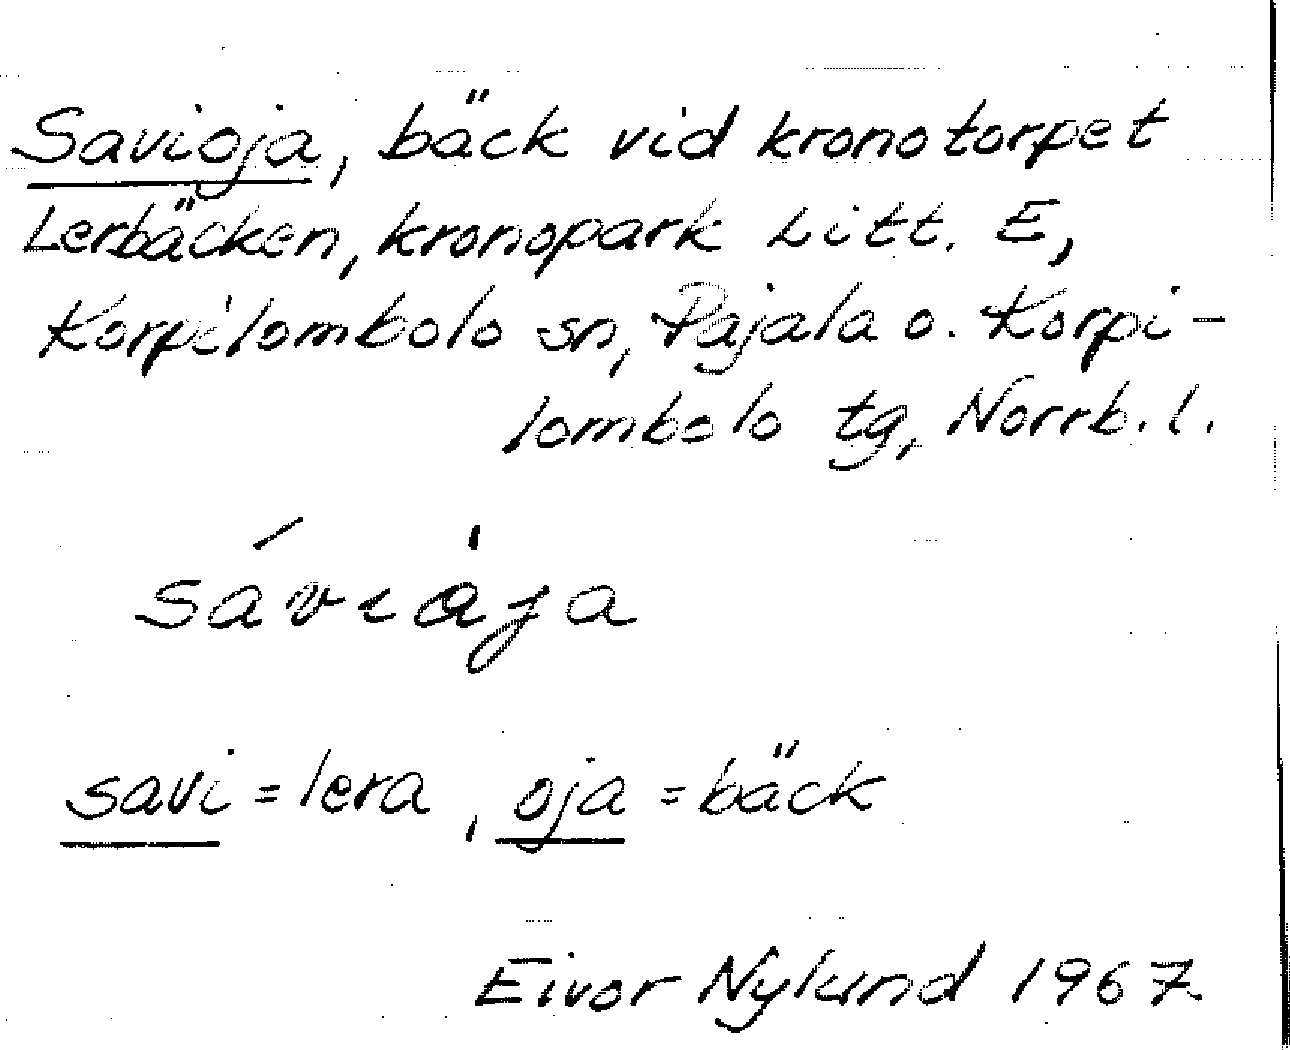 Savioja, bäck vid kronotorpet
Lerbäcken, kronopark Litt. E,
Korpilombolo sn, Pajala o. Korpi-
lombolo tg, Norrb. l.
sávıȧja
savi = lera, oja = bäck
Eivor Nylund 1967